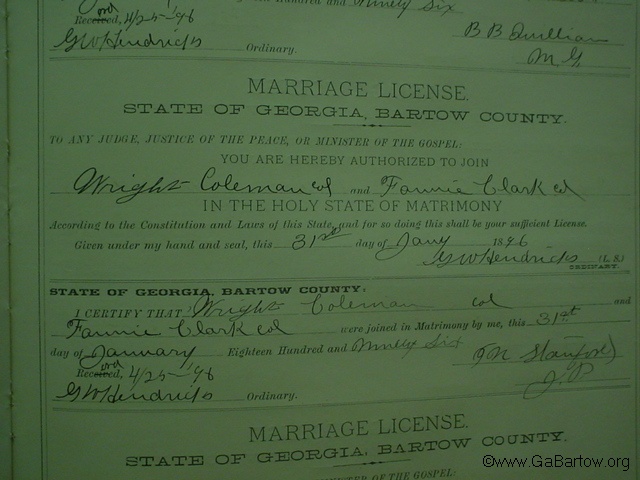 Hundred and Ninety Six
Record, 4/25-'96
B B Quillian
GW Hendricks Ordinary.
M. G
MARRIAGE LICENSE.
STATE OF GEORGIA, BARTOW COUNTY.
TO ANY JUDGE, JUSTICE OF THE PEACE, OR MINISTER OF THE GOSPEL:
YOU ARE HEREBY AUTHORIZED TO JOIN
Wright Coleman col and Fannie Clark col
IN THE HOLY STATE OF MATRIMONY
According to the Constitution and Laws of this State, and for so doing this shall be your sufficient License.
Given under my hand and seal, this 31st day of Jany 1896
GW Hendricks (L. S.)
ORDINARY.
STATE OF GEORGIA, BARTOW COUNTY:
I CERTIFY THAT Wright Coleman col and
Fannie Clark col were joined in Matrimony by me, this 31st
day of January Eighteen Hundred and Ninety Six
Record, 4/25-'96
J. P
GW Hendricks Ordinary.
MARRIAGE LICENSE.
STATE OF GEORGIA, BARTOW COUNTY.
MINISTER OF THE GOSPEL:
©www.GaBartow.org